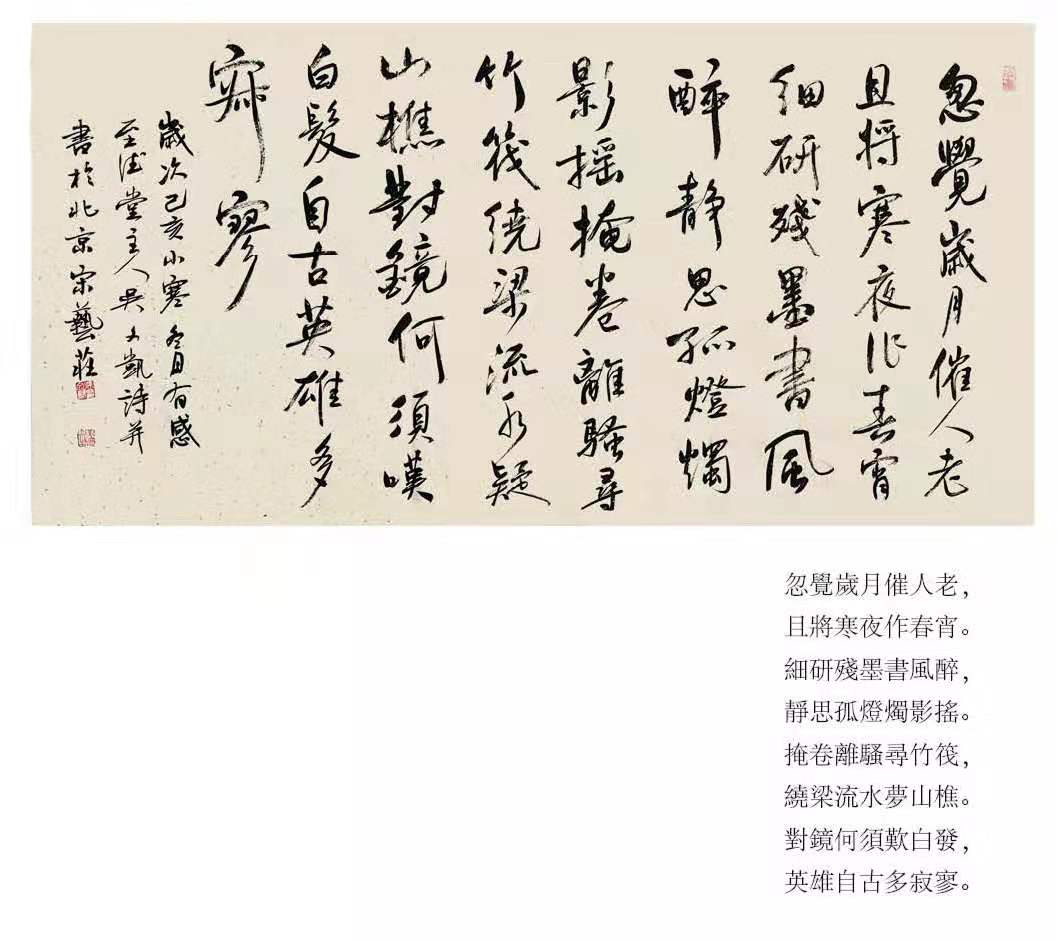 忽覺歲月催人老
且將寒夜作春宵
細研殘墨書風
醉靜思孤燈燭
影搖掩卷離騷尋
竹筏繞梁流水疑
山樵對鏡何須嘆
白髮自古英雄多
寂寥
歲次己亥小寒冬日有感
至德堂主人吳凱詩并
書於北京宋藝莊
忽覺歲月催人老，
且將寒夜作春宵。
細研殘墨書風醉，
靜思孤燈燭影搖。
掩卷離騷尋竹筏，
繞梁流水夢山樵。
對鏡何須歎白發，
英雄自古多寂寥。